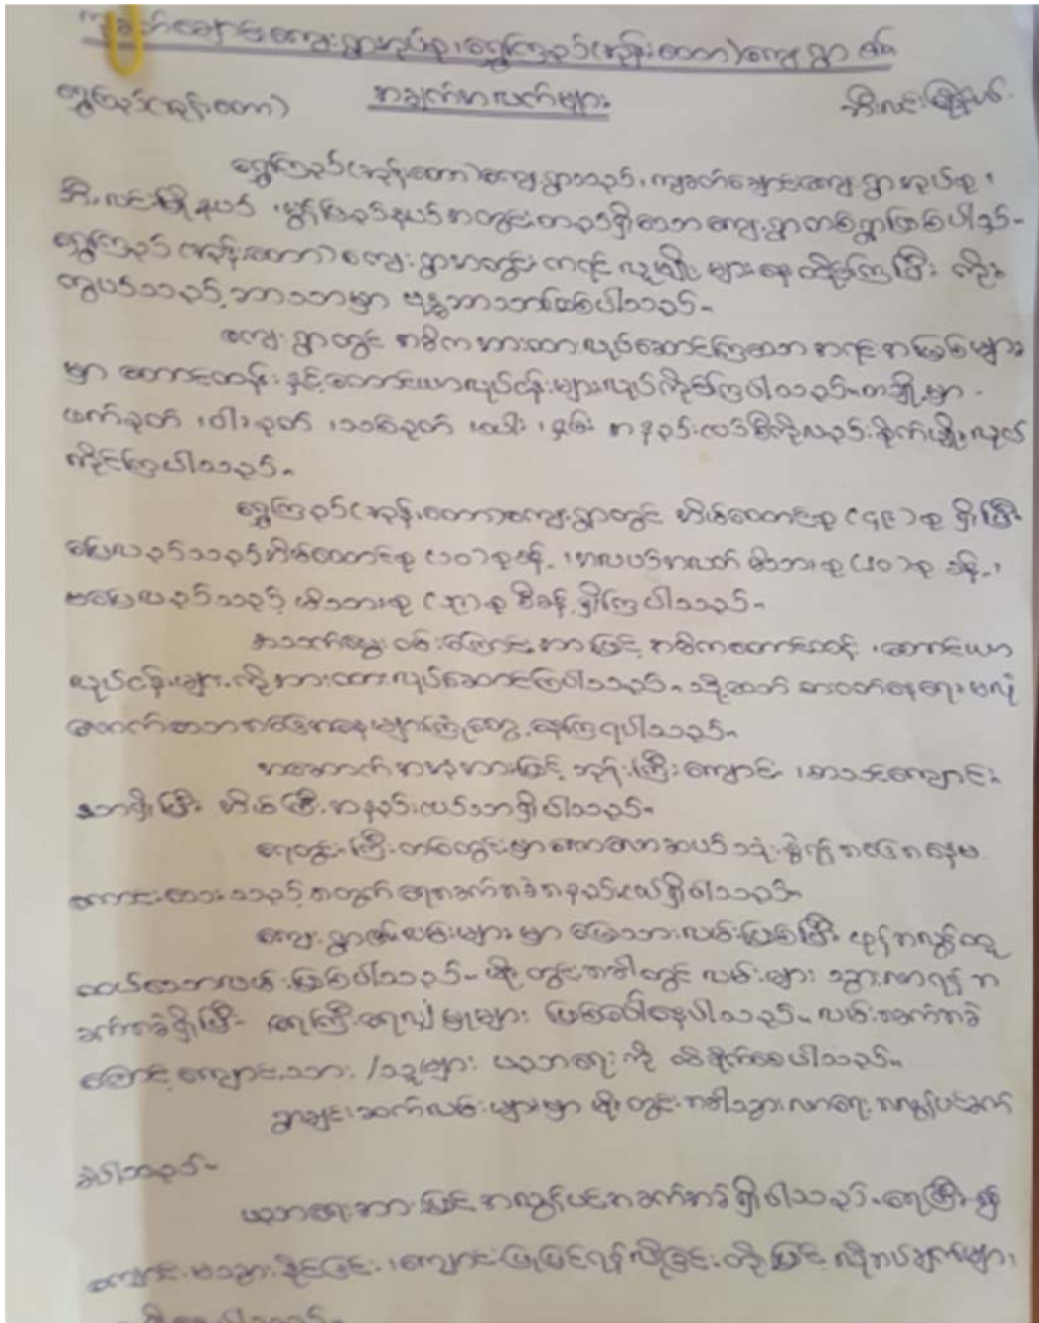 ကျခတ်ချောင်းကျေးရွာအုပ်စု၊ ရွှေကြည်(အုန်းတော)ကျေးရွာ ၏
ရွှေကြည်(အုန်းတော) အချက်အလက်များ ဘီးလင်းမြို့နယ်
ရွှေကြည်(အုန်းတော)ကျေးရွာသည်၊ ကျခတ်ချောင်းကျေးရွာအုပ်စု၊
ဘီးလင်းမြို့နယ်၊ မွန်ပြည်နယ်အတွင်းတည်ရှိသောကျေးရွာတစ်ရွာဖြစ်ပါသည်။
ရွှေကြည်(အုန်းတော)ကျေးရွာအတွင်း ကရင်လူမျိုးများနေထိုင်ကြပြီး ကိုး
ကွယ်သည့်ဘာသာမှာ ဗုဒ္ဓဘာသာဖြစ်ပါသည်။
ကျေးရွာတွင် အဓိကအားထားလုပ်ဆောင်ကြသောအရင်းအမြစ်များ
မှာ တောင်ထန်းနှင့်တောင်ယာလုပ်ငန်းများလုပ်ကိုင်ကြပါသည်။ တချို့မှာ
ဖက်ခုတ်၊ ဝါးခုတ်၊ သစ်ခုတ် အနည်းငယ်စီကိုလည်းစိုက်ပျိုးလုပ်
ကိုင်ကြပါသည်။
ရွှေကြည်(အုန်းတော)ကျေးရွာတွင် အိမ်ထောင်စု ( )စု ရှိပြီး
ပြေလည်သည့်အိမ်ထောင်စု (၁၀)စုခန့်၊ အလယ်အလတ်မိသားစု ( )စု ခန့်၊
မပြေလည်သည့်မိသားစု ( )စု စီခန့်ရှိကြပါသည်။
အသက်မွေးဝမ်းကျောင်းအားဖြင့် အဓိကတောင်ထန်း၊ တောင်ယာ
လုပ်ငန်းများကိုအားထားလုပ်ဆောင်ကြပါသည်။ သို့သော် စားဝတ်နေရေးမလုံ
လောက်သောအခြေအနေများကြုံတွေ့နေကြရပါသည်။
အဆောက်အအုံအားဖြင့် ဘုန်းကြီးကျောင်း၊ စာသင်ကျောင်း
သာရှိပြီး အိမ်ကြီးအနည်းငယ်သာရှိပါသည်။
ရေတွင်းကြီးတစ်တွင်းမှာ အခြေအနေမ
ကောင်းသေးသည့်အတွက် ရေအခက်အခဲအနည်းငယ်ရှိပါသည်။
ကျေးရွာ၏လမ်းများမှာ မြေသားလမ်းဖြစ်ပြီး ဖုန်အလွန်ထူ
ထပ်သောလမ်းဖြစ်ပါသည်။ မိုးတွင်းအခါတွင် လမ်းများ သွားလာရန် အ
ခက်အခဲရှိပြီး ရေကြီးရေလျှံမှုများ ဖြစ်ပေါ်နေပါသည်။ လမ်းအခက်အခဲ
ကြောင့်ကျောင်းသား/သူများ ပညာရေးကို ထိခိုက်စေပါသည်။
ရွာချင်းဆက်လမ်းများမှာ မိုးတွင်းအခါသွားလာရေးအလွန်ပင်ခက်
ခဲပါသည်။
ပညာရေးအားဖြင့် အလွန်ပင်အခက်အခဲရှိပါသည်။ ရေကြီး၍
ကျောင်းမသွားနိုင်ခြင်း၊ ကျောင်းပြုပြင်ရန်လိုခြင်းတို့ဖြင့် လိုအပ်ချက်များ